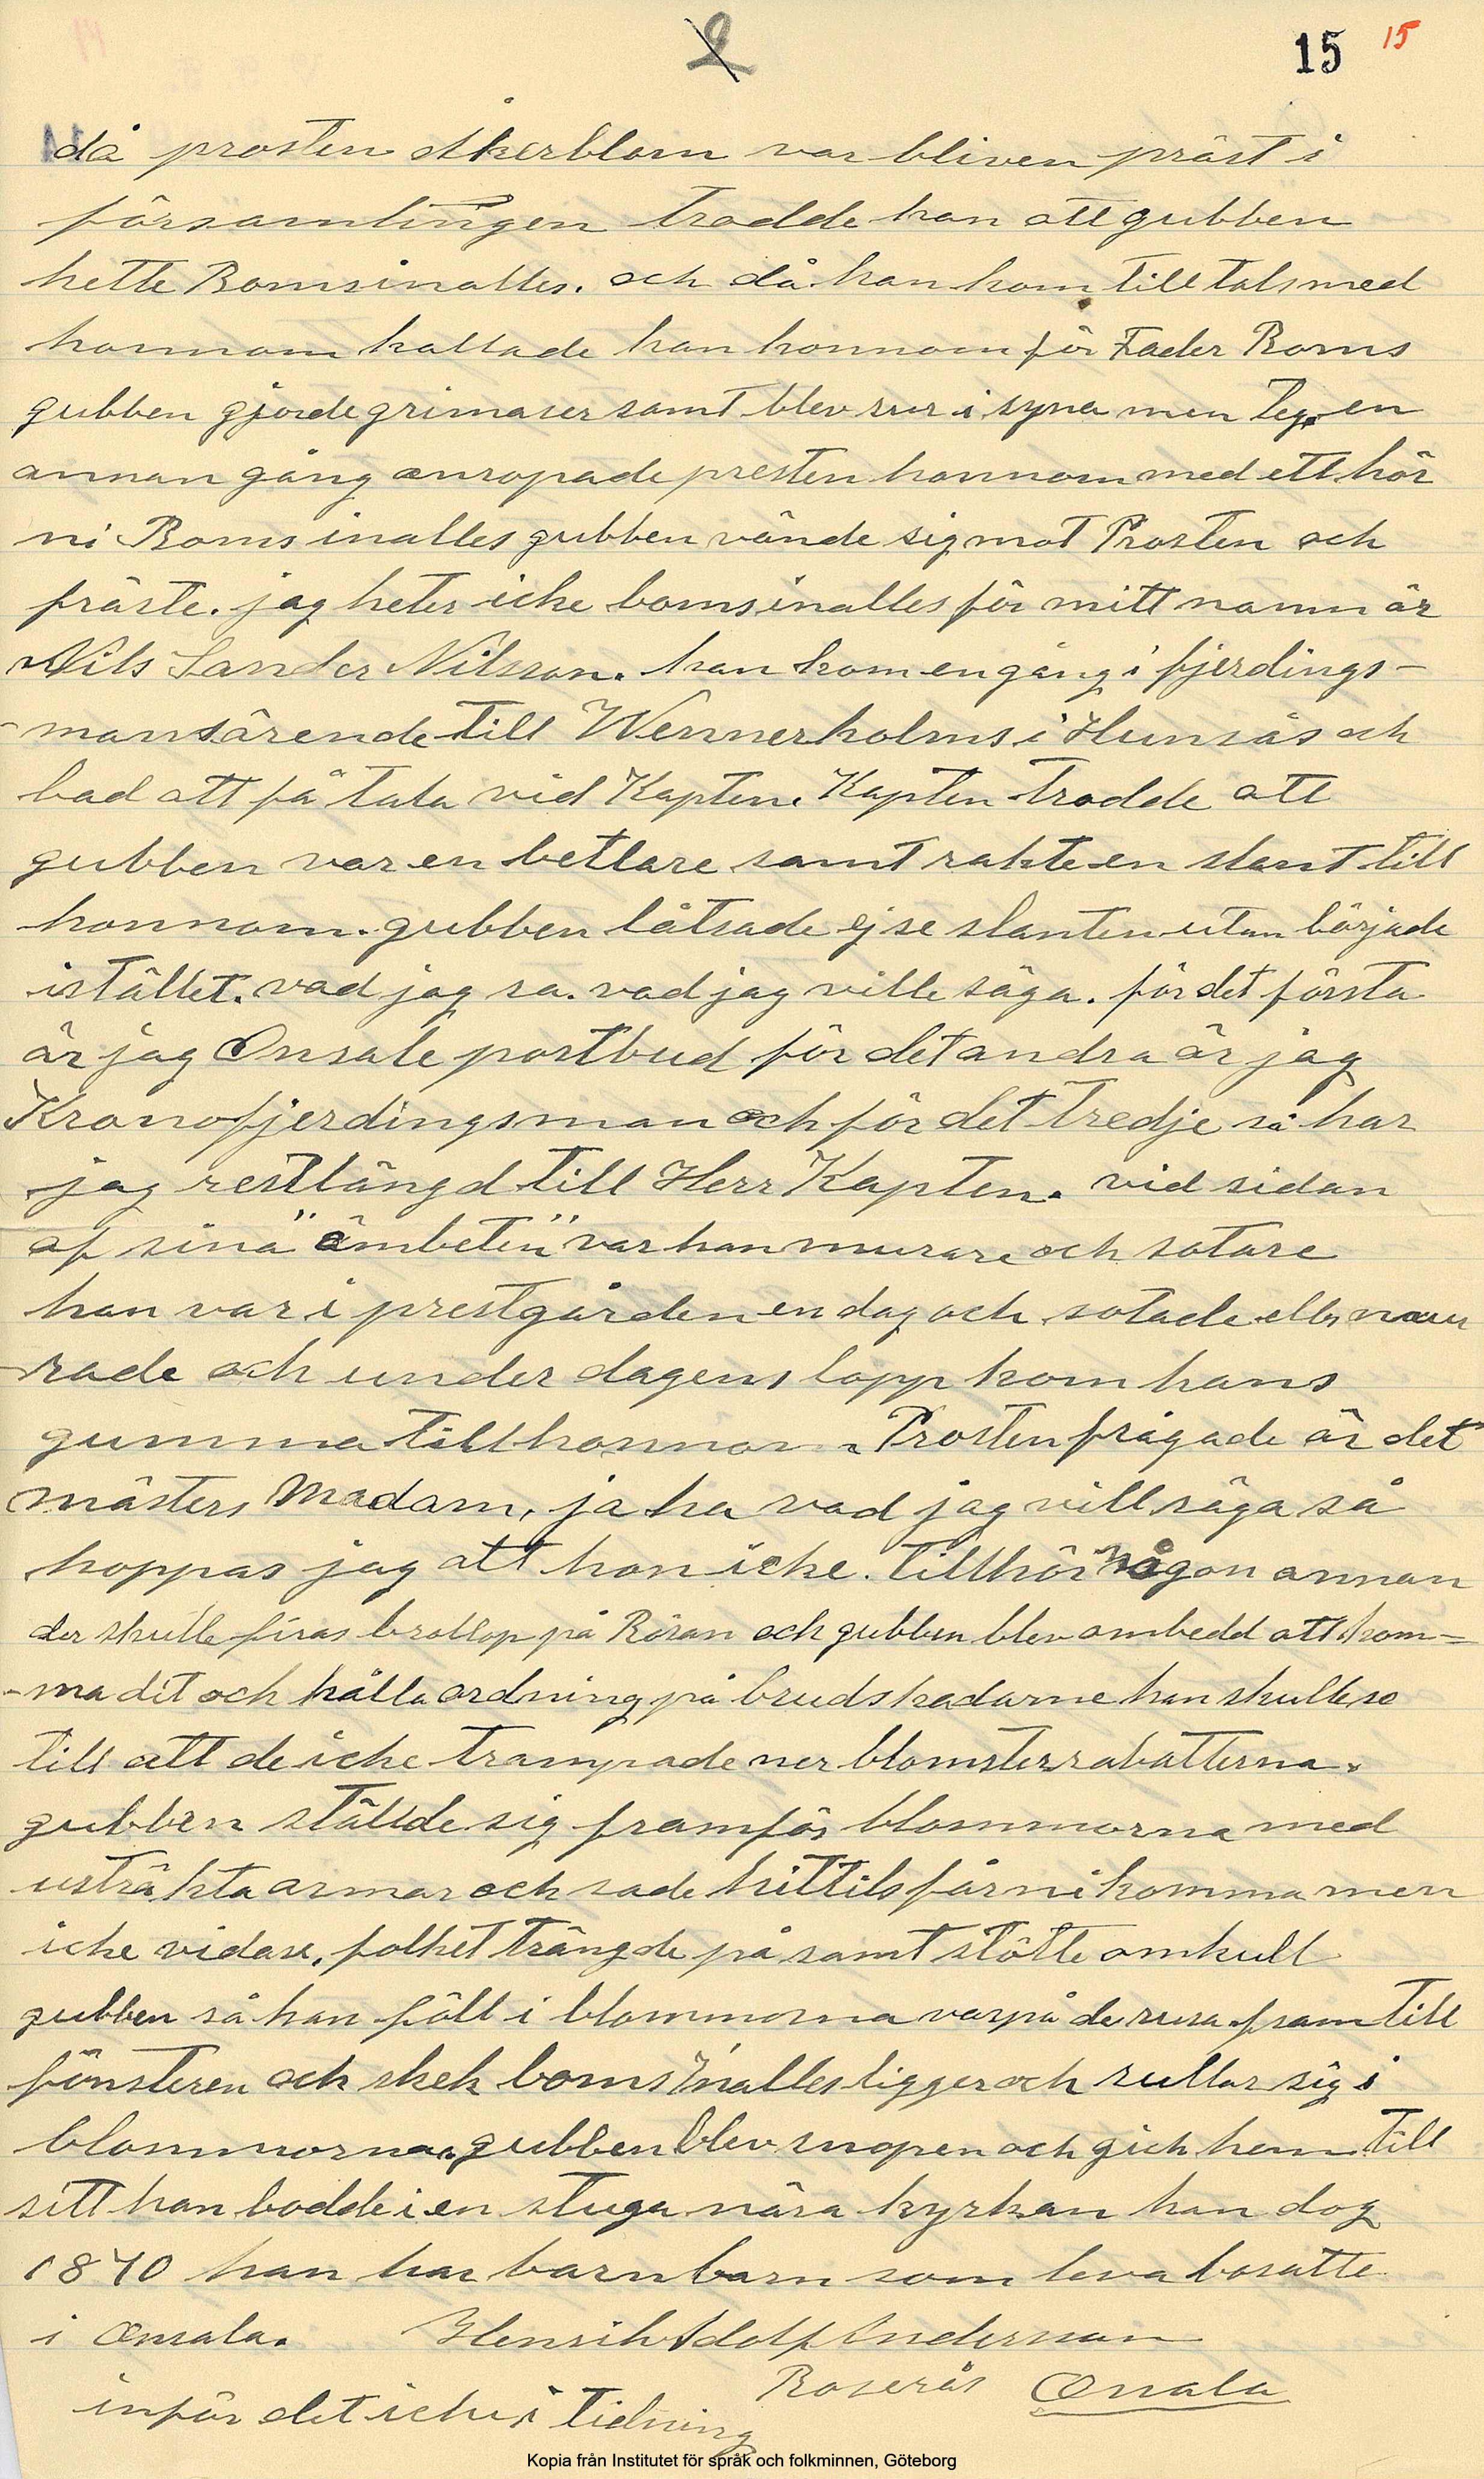 2
15 15
då prosten Åkerblom var bliven präst i
församlingen trodde han att gubben
hette Bomsinalles. och då han kom till tals med
honnom kallade han honnom för Fader Boms
gubben gjorde grimaser samt blev sur i syna men teg. en
annan gång anropade presten honnom med ett hör
ni Boms inalles gubben vände sig mot Prosten och
fräste. jag heter icke bomsinalles för mitt namn är
Nils Sander Nilsson. han kom en gång i fjerdings-
-mansärende till Wennerholms i Hunsås och
bad att få tala vid Kapten. Kapten trodde att
gubben var en betlare samt rakte en slant till
honnom. gubben låtsade ej se slanten utan började
istället. vad jag sa. vad jag ville säga. för det första
är jag Onsala postbud för det andra är jag
Kronofjerdingsman och för det tredje så har
jag restlängd till Herr Kapten. vid sidan
af sina "ämbeten" var han murare och sotare
han var i prestgården en dag och sotade eller mu
-rade och under dagens lopp kom hans
gumma till honnom. Prosten frågade är det
mästers Madam, ja ha vad jag vill säga så
hoppas jag att hon icke. tillhör någon annan
der skulle firas bröllop på Rösan och gubben blev ombedd att kom-
-ma dit och hålla ordning på brudskadarne han skulle se
till att de icke trampade ner blomsterrabatterna.
gubben ställde sig framför blommorna med
usträkta armar och sade hittils får ni komma men
icke vidare. folket trängde på samt stötte omkull
gubben så han föll i blommorna varpå de rusa fram till
fönsteren och skek boms inalles ligger och rullar sig i
blommorna. gubben blev snopen och gick hem till
sitt han bodde i en stuga nära kyrkan han dog
1870 han har barnbarn som leva bosatte
i Onsala. Henrik Adolf Andersson
Roserås Onsala
inför det icke i Tidning
Kopia från Institutet för språk och folkminnen, Göteborg